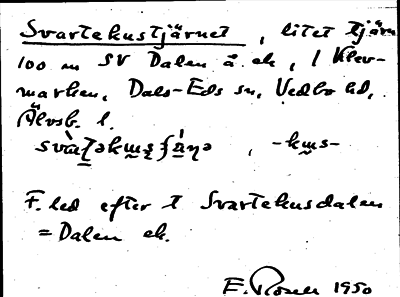 Svartekustjärnet, litet tjärn
100 m SV Dalen å. ek, i Klev-
marken, Dals-Eds sn, Vedbo hd,
Älvsb. l.
svàt̠əkɯsʂɧä́ṇə, -kɯs-
F. led efter t Svartekusdalen
= Dalen ek.
E. Rosen 1950